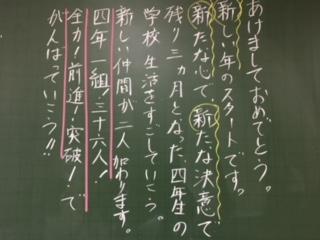 あけましておめでとう。
新しい年のスタートです。
新たな心で、新たな決意で
残り三ヵ月となった、四年生の
学校生活をすごしていこう。
新しい仲間が二人加わります。
四年一組！三十六人！
全力！前進！突破！で
がんばっていこう!!